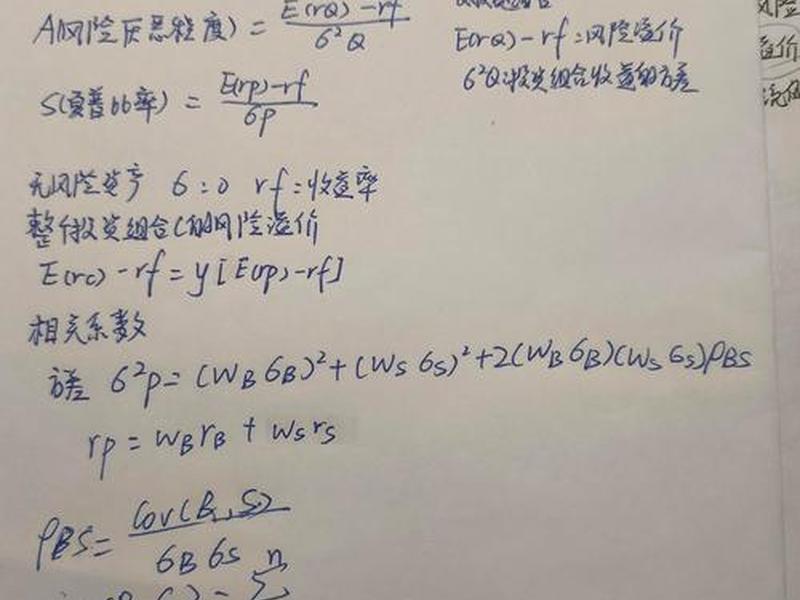 A(风险厌恶程度) = E(rQ) - rf / б²Q
E(rQ) - rf = 风险溢价
б²Q: 投资组合收益的方差
S(夏普比率) = E(rp) - rf / бp
无风险资产 б = 0 rf = 收益率
整个投资组合C的风险溢价
E(rc) - rf = y [E(rp) - rf]
相关系数
方差 б²p = (WB бB)² + (Ws бs)² + 2(WB бB)(Ws бs)ρBS
rp = WBrB + Wsrs
ρBS = Cov(B, S) / бB бS
风险
溢价